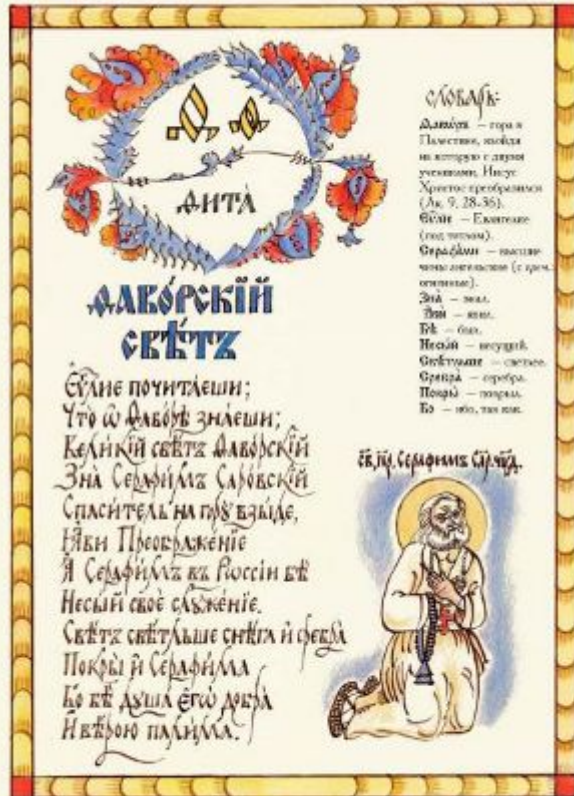 Ѳ, ѳ
ѲИТА̀
ѲАВО́РСКІЙ
СВѢ́ТЪ
Еѵ҃ліе почита́еши;
Что̀ ѡ Ѳаво́рѣ зна́еши;
Вели́кій свѣ́тъ Ѳаво́рскій
Зна̀ Серафи́мъ Саро́вскій
Спаси́тель на го́рꙋ взы́де,
Ꙗ҆вѝ Преѡбраже́ніе
А҆ Серафи́мъ въ Рѡссі́и бѣ̀
Несы́й своѐ слꙋже́ніе.
Свѣ́тъ свѣтлѣ́йше снѣ́га и҆ сребра̀
Покры̀ и҆ Серафи́ма
Бо бѣ̀ дꙋша̀ є҆гѡ̀ добра̀
И҆ вѣ́рою пали́ма.
СЛОВАРЬ:
Ѳаво́ръ — гора в
Палестине, взойдя
на которую с двумя
учениками, Иисус
Христос преобразился
(Лк. 9, 28-36).
Еѵ҃ліе — Евангелие
(под титлом).
Серафи́ми — высшие
чины ангельские (с греч.
огненные).
Зна̀ — знал.
Ꙗ҆вѝ — явил.
Бѣ̀ — был.
Несы́й — несущий.
Свѣтлѣ́йше — светлее.
Сребра̀ — серебра.
Покры̀ — покрыл.
Бо — ибо, так как.
св. пр. Серафимъ Сар. чꙋд.